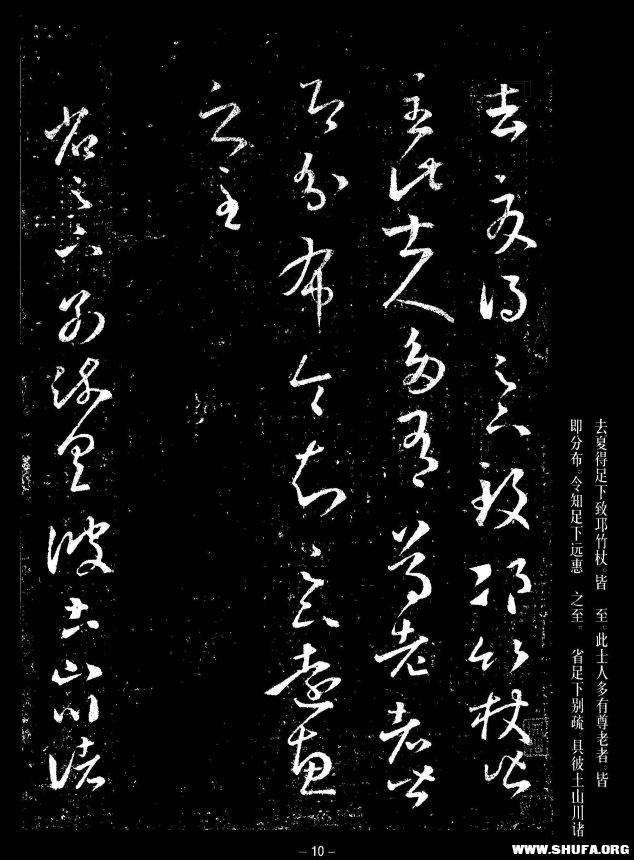 去夏得足下致邛竹杖皆
至此士人多有尊老者皆
即分布令知足下遠惠
之至
省足下別疏具彼土山川諸
去夏得足下致邛竹杖。皆 至。此士人多有尊老者。皆
即分布。令知足下远惠 之至。 省足下别疏。具彼土山川诸
– 10 –
WWW.SHUFA.ORG